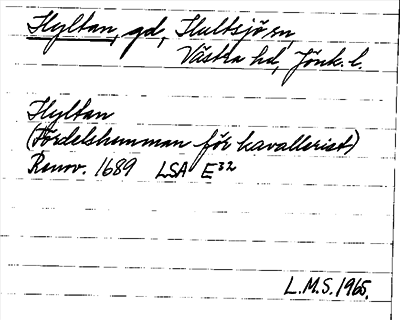 Hyltan, gd, Hultsjö sn
Västra hd, Jönk. l.
Hyltan
(Fördelshemman för kavallerist)
Renov. 1689 LSA E32
L.M.S. 1965.